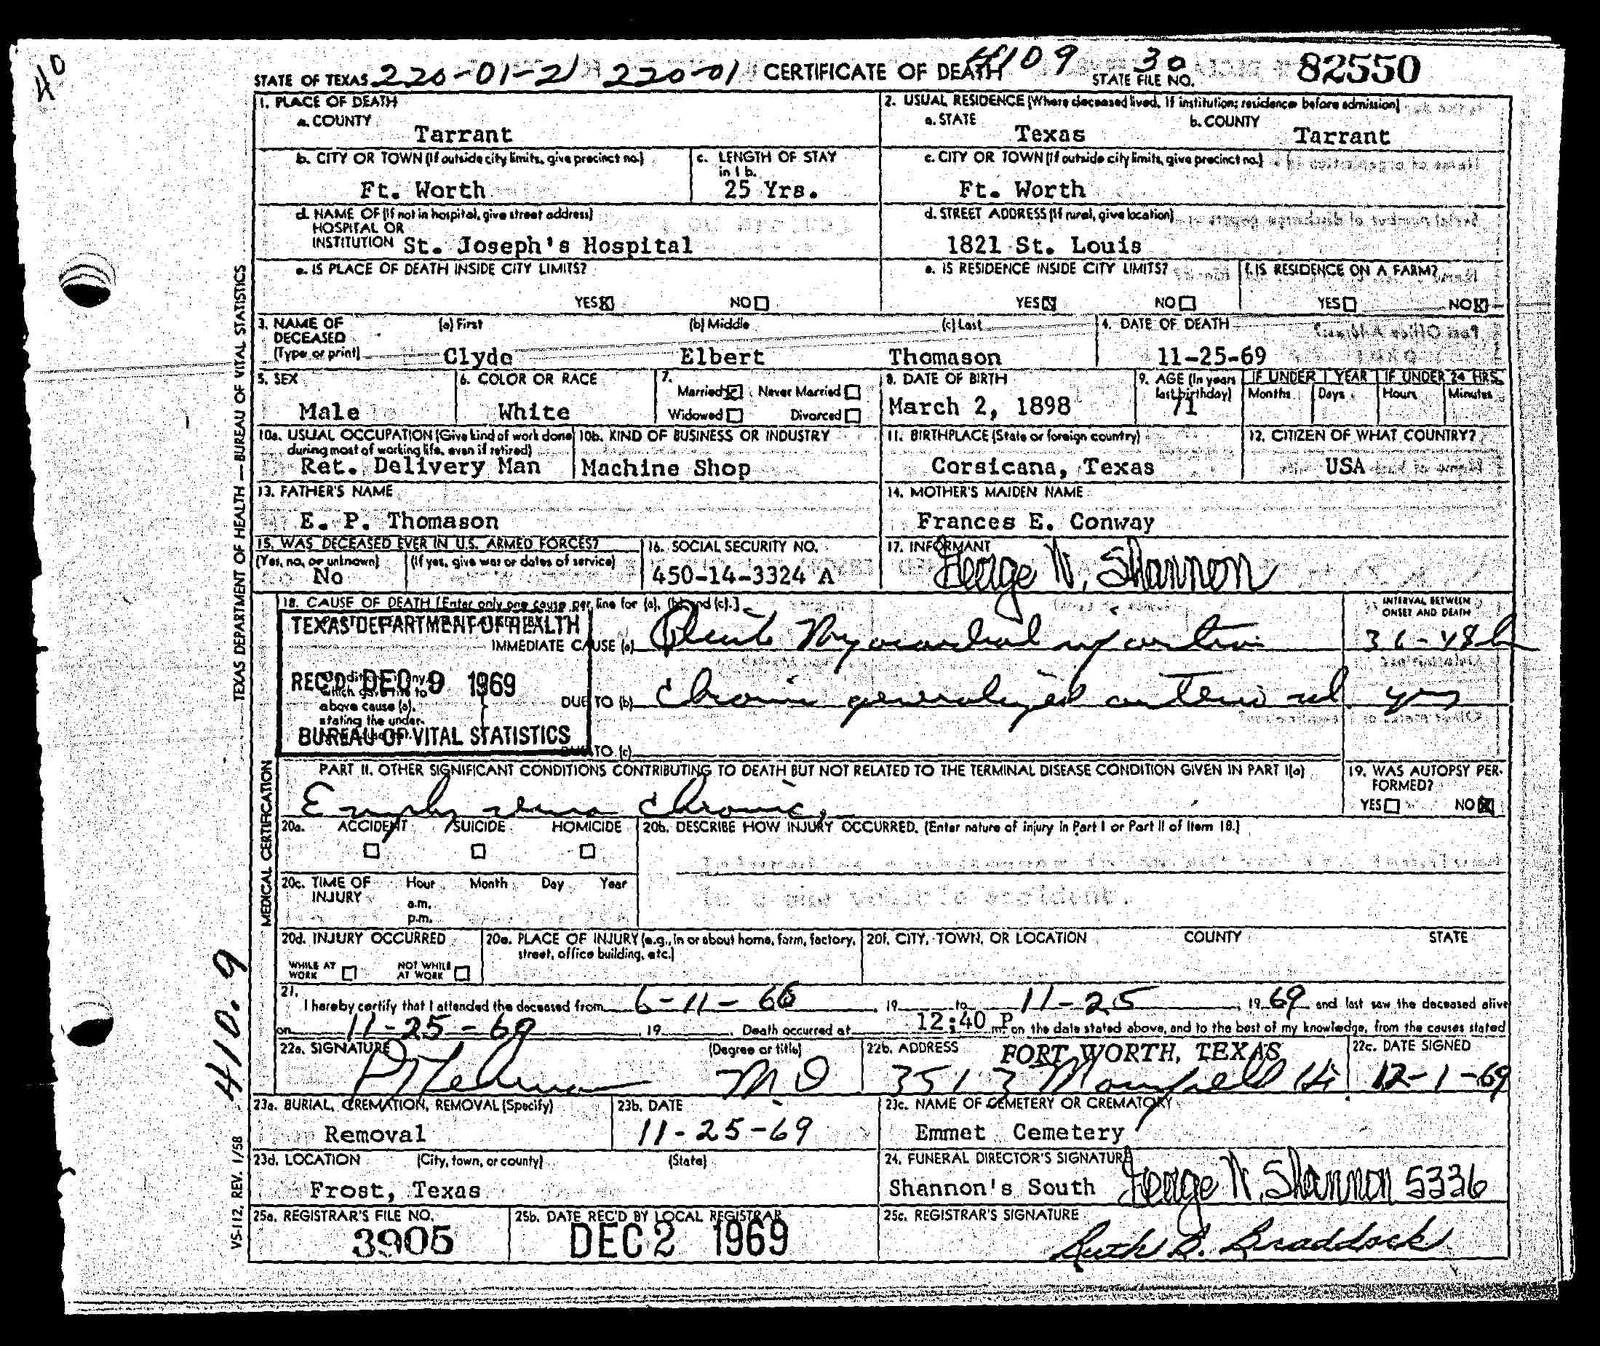 40
STATE OF TEXAS 220-01-21 220-01 CERTIFICATE OF DEATH 4109 STATE FILE NO. 30 82550
1. PLACE OF DEATH
a. COUNTY
Tarrant
2. USUAL RESIDENCE (Where deceased lived. If institution: residence before admission)
a. STATE b. COUNTY
Texas Tarrant
b. CITY OR TOWN (If outside city limits, give precinct no.)
Ft. Worth
c. LENGTH OF STAY
in 1 b.
25 Yrs.
c. CITY OR TOWN (If outside city limits, give precinct no.)
Ft. Worth
d. NAME OF (If not in hospital, give street address)
HOSPITAL OR
INSTITUTION St. Joseph's Hospital
d. STREET ADDRESS (If rural, give location)
1821 St. Louis
e. IS PLACE OF DEATH INSIDE CITY LIMITS?
YES NO
e. IS RESIDENCE INSIDE CITY LIMITS?
YES NO
f. IS RESIDENCE ON A FARM?
YES NO
3. NAME OF DECEASED
(Type or print)
(a) First (b) Middle (c) Last
Clyde Elbert Thomason
4. DATE OF DEATH
11-25-69
5. SEX
Male
6. COLOR OR RACE
White
7.
Married Never Married
Widowed Divorced
8. DATE OF BIRTH
March 2, 1898
9. AGE (In years
last birthday)
71
IF UNDER 1 YEAR IF UNDER 24 HRS.
Months Days Hours Minutes
10a. USUAL OCCUPATION (Give kind of work done
during most of working life, even if retired)
Ret. Delivery Man
10b. KIND OF BUSINESS OR INDUSTRY
Machine Shop
11. BIRTHPLACE (State or foreign country)
Corsicana, Texas
12. CITIZEN OF WHAT COUNTRY?
USA
13. FATHER'S NAME
E. P. Thomason
14. MOTHER'S MAIDEN NAME
Frances E. Conway
15. WAS DECEASED EVER IN U.S. ARMED FORCES?
(Yes, no, or unknown) (If yes, give war or dates of service)
No
16. SOCIAL SECURITY NO.
450-14-3324 A
17. INFORMANT
George W. Shannon
18. CAUSE OF DEATH [Enter only one cause per line for (a), (b), and (c).]
INTERVAL BETWEEN
ONSET AND DEATH
TEXAS DEPARTMENT OF HEALTH
REC'D DEC 9 1969
BUREAU OF VITAL STATISTICS
IMMEDIATE CAUSE (a) Acute Myocardial infarction 36-48h
above cause (a),
stating the under-
DUE TO (b) Chronic generalized yrs
DUE TO (c)
PART II. OTHER SIGNIFICANT CONDITIONS CONTRIBUTING TO DEATH BUT NOT RELATED TO THE TERMINAL DISEASE CONDITION GIVEN IN PART I(a)
Emphysema chronic,
19. WAS AUTOPSY PER-
FORMED?
YES NO
20a. ACCIDENT SUICIDE HOMICIDE
20b. DESCRIBE HOW INJURY OCCURRED. (Enter nature of injury in Part I or Part II of item 18.)
20c. TIME OF
INJURY
Hour Month Day Year
a.m.
p.m.
20d. INJURY OCCURRED
WHILE AT
WORK
NOT WHILE
AT WORK
20e. PLACE OF INJURY (e.g., in or about home, farm, factory,
street, office building, etc.)
20f. CITY, TOWN, OR LOCATION COUNTY STATE
21. I hereby certify that I attended the deceased from 6-11-66 19 to 11-25, 1969 and last saw the deceased alive
on 11-25-69 19 . Death occurred at 12:40 P m. on the date stated above, and to the best of my knowledge, from the causes stated
22a. SIGNATURE (Degree or title)
MD
22b. ADDRESS
FORT WORTH, TEXAS
3513 Mansfield Hi
22c. DATE SIGNED
12-1-69
23a. BURIAL, CREMATION, REMOVAL (Specify)
Removal
23b. DATE
11-25-69
23c. NAME OF CEMETERY OR CREMATORY
Emmet Cemetery
23d. LOCATION (City, town, or county) (State)
Frost, Texas
24. FUNERAL DIRECTOR'S SIGNATURE
Shannon's South George W. Shannon 5336
25a. REGISTRAR'S FILE NO.
3905
25b. DATE REC'D BY LOCAL REGISTRAR
DEC 2 1969
25c. REGISTRAR'S SIGNATURE
Ruth S. Braddock
TEXAS DEPARTMENT OF HEALTH — BUREAU OF VITAL STATISTICS
MEDICAL CERTIFICATION
410.9
VS-112, REV. 1/58